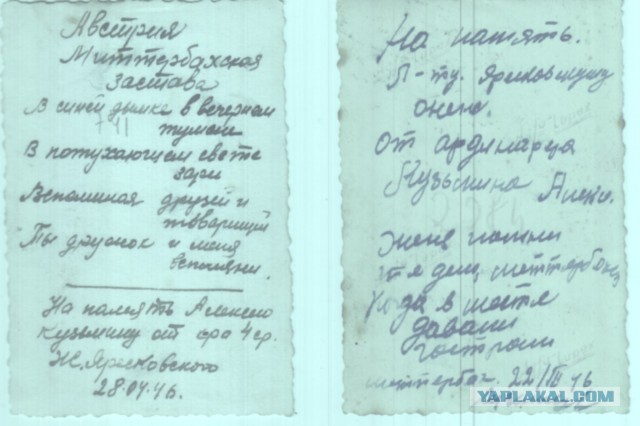 Австрия
Миттербахская
Застава
В синей дымке в вечернем
тумане
В потухающем свете
зари
Вспоминая друзей и
товарищей
Ты дружок и меня
вспомяни.
На память Алексею
Кузьмину от
Ярековского
28.04.46.
На память.
Л-ту. Ярековскому
От ординарца
Кузьмина Алекс.
Женя помни
в
давали
22/III 46
YAPLAKAL.COM